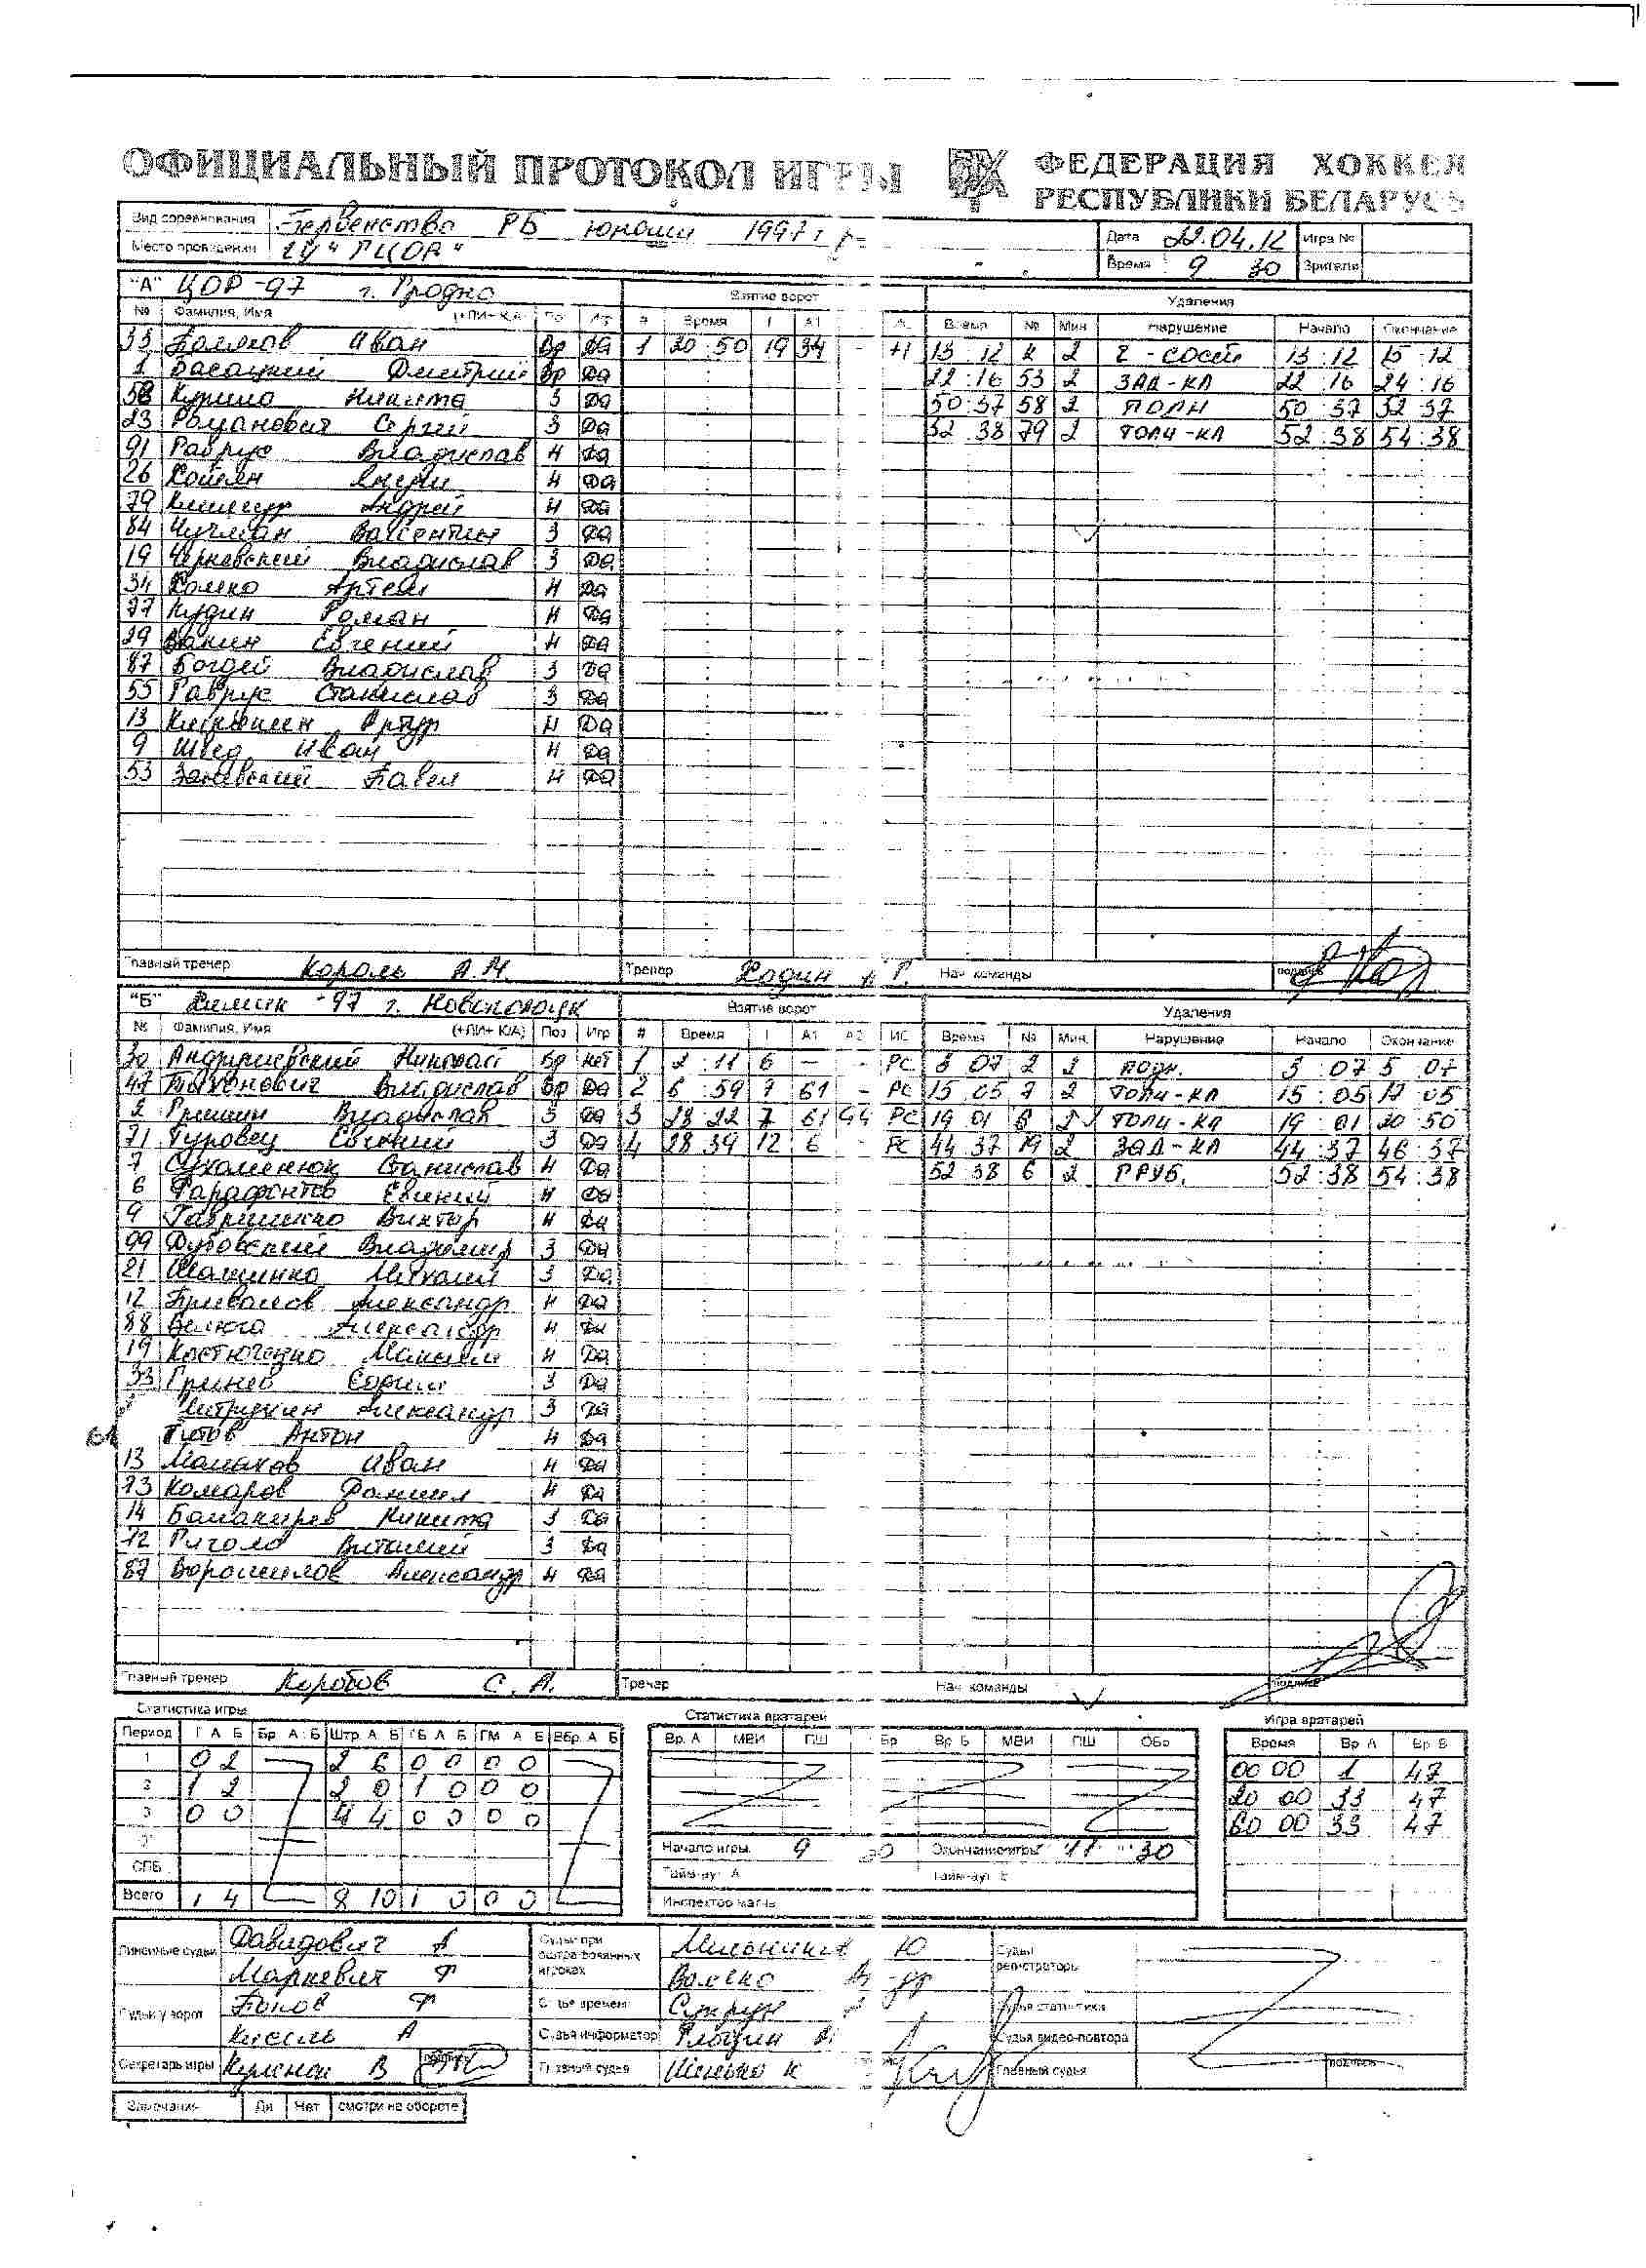 ОФИЦИАЛЬНЫЙ ПРОТОКОЛ ИГРЫ
ФЕДЕРАЦИЯ ХОККЕЯ
РЕСПУБЛИКИ БЕЛАРУСЬ
Вид соревнования Первенство РБ юноши 1997 г
Дата 22.04.12 Игра №
Место проведения ГУ "ГЦОР"
Время 9 30 Зрители
"А" ЦОР-97 г. Гродно Взятие ворот Удаления
№ Фамилия, Имя Время А1 Время № Мин Нарушение Начало Окончание
33 Поляков Иван Вр Да 1 20:50 19 34 - +1 13 12 К 2 13:12 15 12
1 Дмитрий Вр Да 22:16 53 2 ЗАД-КЛ 22 16 24:16
58 Никита З Да 50:37 58 2 50 37 52 37
23 Романович Сергей З Да 52 38 79 2 ТОЛЧ-КЛ 52:38 54:38
91 Гаврус Владислав Н Да
26 Н Да
79 Андрей Н Да
84 Валентин З Да
19 Владислав З Да
34 Артем Н Да
77 Кудин Роман Н Да
29 Ванин Евгений Н Да
87 Богдей Владислав З Да
55 Гаврус Станислав З Да
13 Артур Н Да
9 Швед Иван Н Да
53 Павел Н Да
Главный тренер Король А.М. Тренер Родин Г. Нач команды подпись
"Б" Химик -97 г. Новополоцк Взятие ворот Удаления
№ Фамилия, Имя (+ЛИ+ К/А) Поз Игр # Время Г А1 А2 ИС Время № Мин. Нарушение Начало Окончание
30 Андриевский Николай Вр нет 1 2:11 6 - - РС 3 07 2 2 подн. 3:07 5 07
47 Тыханович Владислав Вр Да 2 6:59 7 61 - РС 15 05 7 2 ТОЛЧ-КЛ 15:05 17 05
2 Владислав З Да 3 28 22 7 61 44 РС 19 01 6 2 ТОЛЧ-КЛ 19:01 20 50
71 Туровец Евгений З Да 4 28 39 12 6 - РС 44 37 19 2 ЗАД-КЛ 44:37 46:37
7 Сухаменюк Станислав Н Да 52 38 6 2 ГРУБ. 52:38 54:38
6 Фарафонтов Евгений Н Да
9 Гавриленко Виктор Н Да
99 Дубовский Владимир З Да
21 Михаил З Да
12 Привалов Александр Н Да
88 Велюга Александр Н Да
19 Костюченко Максим Н Да
33 Гринев З Да
Александр З Да
61 Титов Антон Н Да
13 Малахов Иван Н Да
73 Комаров Даниил Н Да
14 Балакирев Никита З Да
72 Виталий З Да
87 Ворошилов Александр Н Да
Главный тренер Коробов С. А. Тренер Нач команды подпись
Статистика игры Статистика вратарей Игра вратарей
Период Г А Б Бр А Б Штр А Б ГБ А Б ГМ А Б Вбр. А Б Вр. А МВИ ПШ Бр Вр Б МВИ ПШ ОБр Время Вр А Вр Б
1 0 2 2 6 0 0 0 0 00 00 1 47
2 1 2 2 0 1 0 0 0 20 00 33 47
3 0 0 4 4 0 0 0 0 60 00 33 47
Начало игры 9 30 Окончание игры 11 30
СПБ Тайм-аут А Тайм-аут Б
Всего 1 4 8 10 1 0 0 0 Инспектор матча
Линейные судьи Давидович А Судьи при оштрафованных игроках Мельников Ю Судьи регистраторы
Маркевич Ф Волеко
Судьи у ворот Попов Ф Судья времени Супрун Судья статистики
Кисель А Судья информатор Судья видео-повтора
Секретарь игры В подпись Главный судья К Главный судья подпись
Замечания Да Нет смотри на обороте